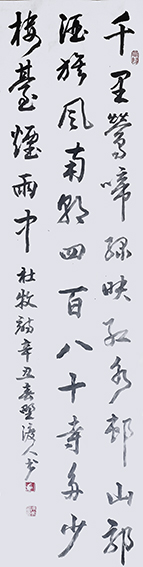 千里鶯啼綠映紅水邨山郭
酒旗風南朝四百八十寺多少
樓臺煙雨中 杜牧詩辛丑春野渡人书